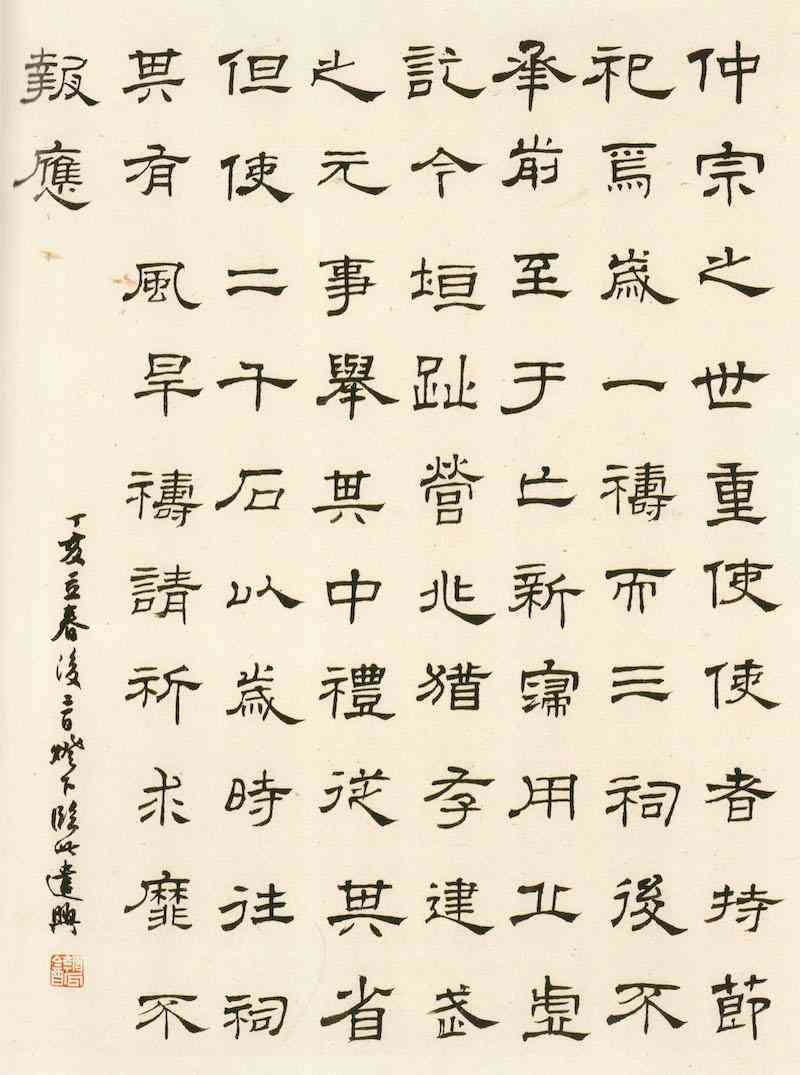 仲宗之世重使使者持節
祀焉歲一禱而三祠後不
承前至于亡新寖用丘虛
訖今垣趾營兆猶存建武
之元事舉其中禮從其省
但使二千石以歲時往祠
其有風旱禱請祈求靡不
報應
丁亥立春後二日燈下臨此遣興